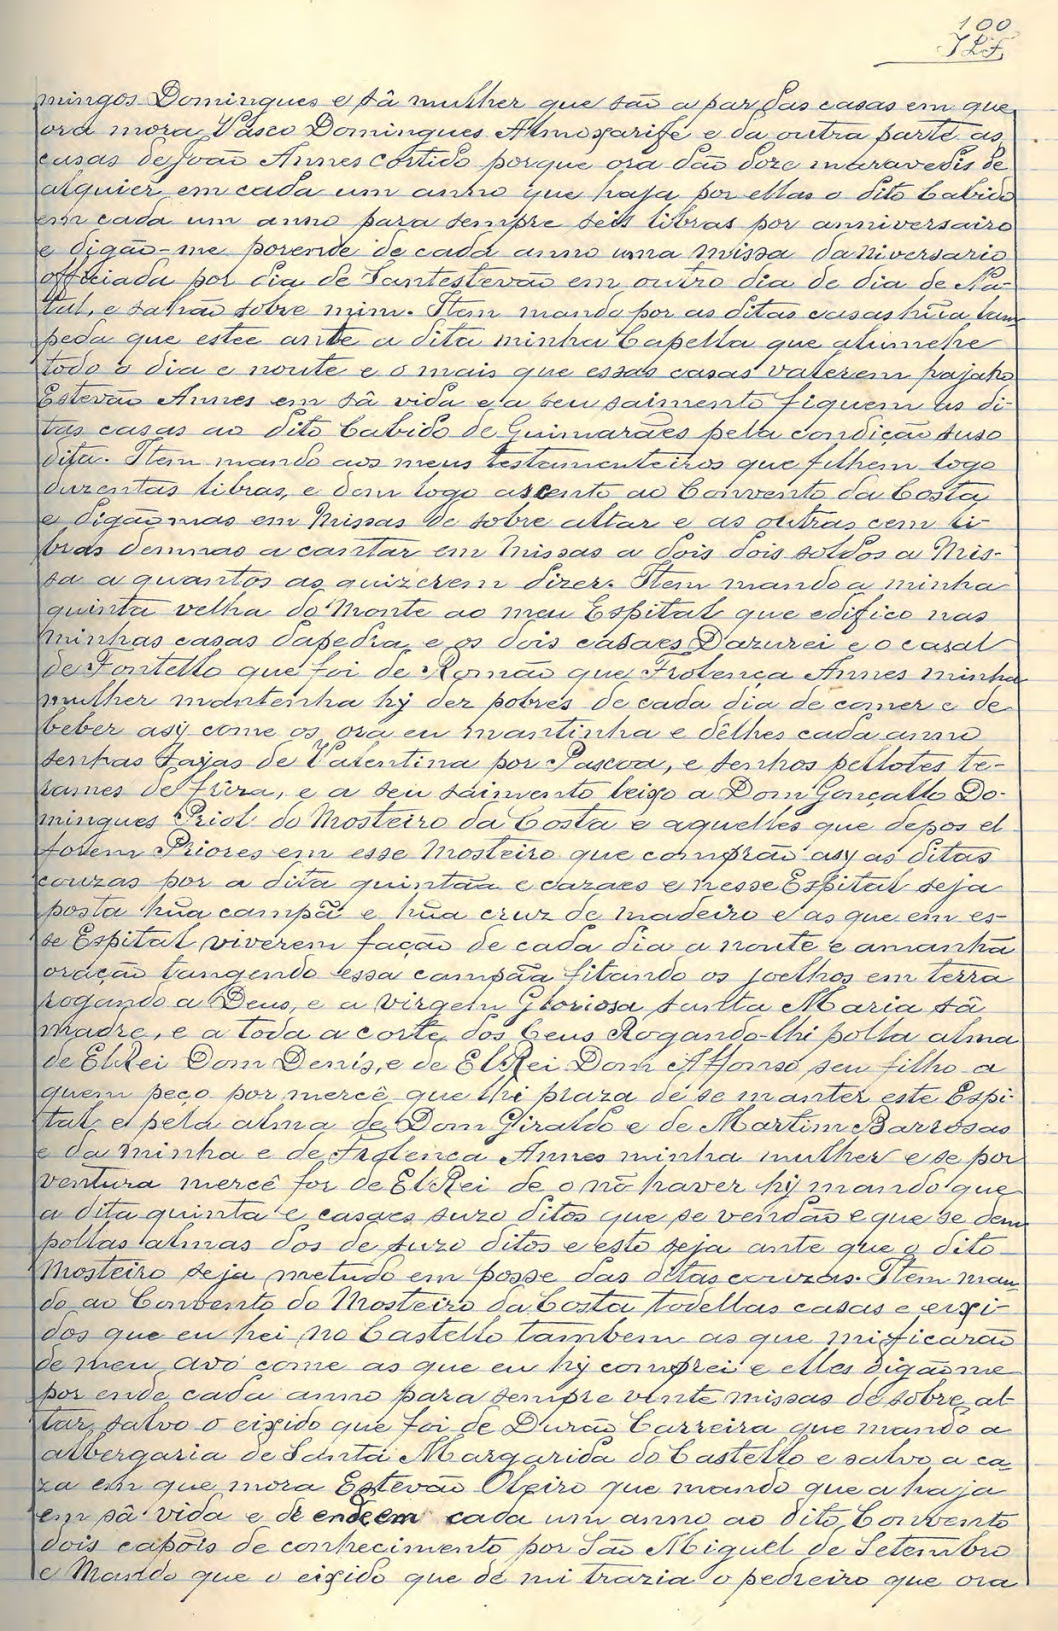 100
mingos Domingues e sâ mulher que são a par das casas em que
ora mora Vasco Domingues Almoxarife e da outra parte as
casas de João Annes cortido porque ora dão doze maravedis de
alquier em cada um anno que haja por ellas o dito Cabido
em cada um anno para sempre seis libras por anniversairo
e digão-me porende de cada anno uma missa daniversario
officiada por dia de Santestevão em outro dia de dia de Na-
tal, e sahão sobre mim. Item mando por as ditas casas hũa lam-
peda que estee ante a dita minha Capella que alumehe
todo o dia e noute e o mais que essas casas valerem hajaho
Estevão Annes em sâ vida e a seu saimento fiquem as di-
tas casas ao dito Cabido de Guimarães pela condição suso
dita. Item mando aos meus testamenteiros que filhem logo
duzentas libras, e dem logo as cento ao Convento da Costa
e digãomas em Missas de sobre altar e as outras cem li-
bras demnas a cantar em missas a dois dois soldos a Mis-
sa a quantos as quizerem dizer. Item mando a minha
quinta velha do Monte ao meu Espital que edifico nas
minhas casas dapedra, e os dois casaes Dazurei e o casal
de Fontello que foi de Romão que Frolença Annes minha
mulher mantenha hy dez pobres de cada dia de comer e de
beber asy come os ora eu mantinha e dêlhes cada anno
senhas saxas de Valentina por Pascoa, e senhos pellotes te-
rames de friza, e a seu saimento leixo a Dom Gonçallo Do-
mingues Priol do Mosteiro da Costa e aquelles que depos el
forem Priores em esse Mosteiro que comprão asy as ditas
couzas por a dita quintãa e cazaes e nesse Espital seja
posta hũa campã e hũa cruz de madeiro e as que em es-
se Espital viverem fação de cada dia a noute e amanhã
oração tangendo essa campãa fitando os joelhos em terra
rogando a Deus, e a virgem Gloriosa santa Maria sâ
madre, e a toda a corte dos Ceus Rogando-lhi polla alma
de ElRei Dom Denis, e de ElRei Dom Affonso seu filho a
quem peço por mercê que lhi praza de se manter este Espi-
tal e pela alma de Dom Giraldo e de Martim Barrosas
e da minha e de Frolenca Annes minha mulher e se por
ventura mercê for de ElRei de o nõ haver hy mando que
a dita quinta e casaes suzo ditos que se vendão e que se dem
pollas almas dos de suzo ditos e esto seja ante que o dito
Mosteiro seja metudo em posse das ditas couzas. Item man-
do ao Convento do Mosteiro da Costa todellas casas e eixi-
dos que eu hei no Castello tambem as que mificarão
de meu avó come as que eu hy comprei e elles digãome
por ende cada anno para sempre vinte missas de sobre al-
tar, salvo o eixido que foi de Durão Carreira que mando a
albergaria de Santa Margarida do Castello e salvo a ca-
za em que mora Estevão Oleiro que mando que a haja
em sâ vida e dê endeem cada um anno ao dito Convento
dois capões de conhecimento por São Miguel de Setembro
e Mando que o eixido que de mi trazia o pedreiro que ora